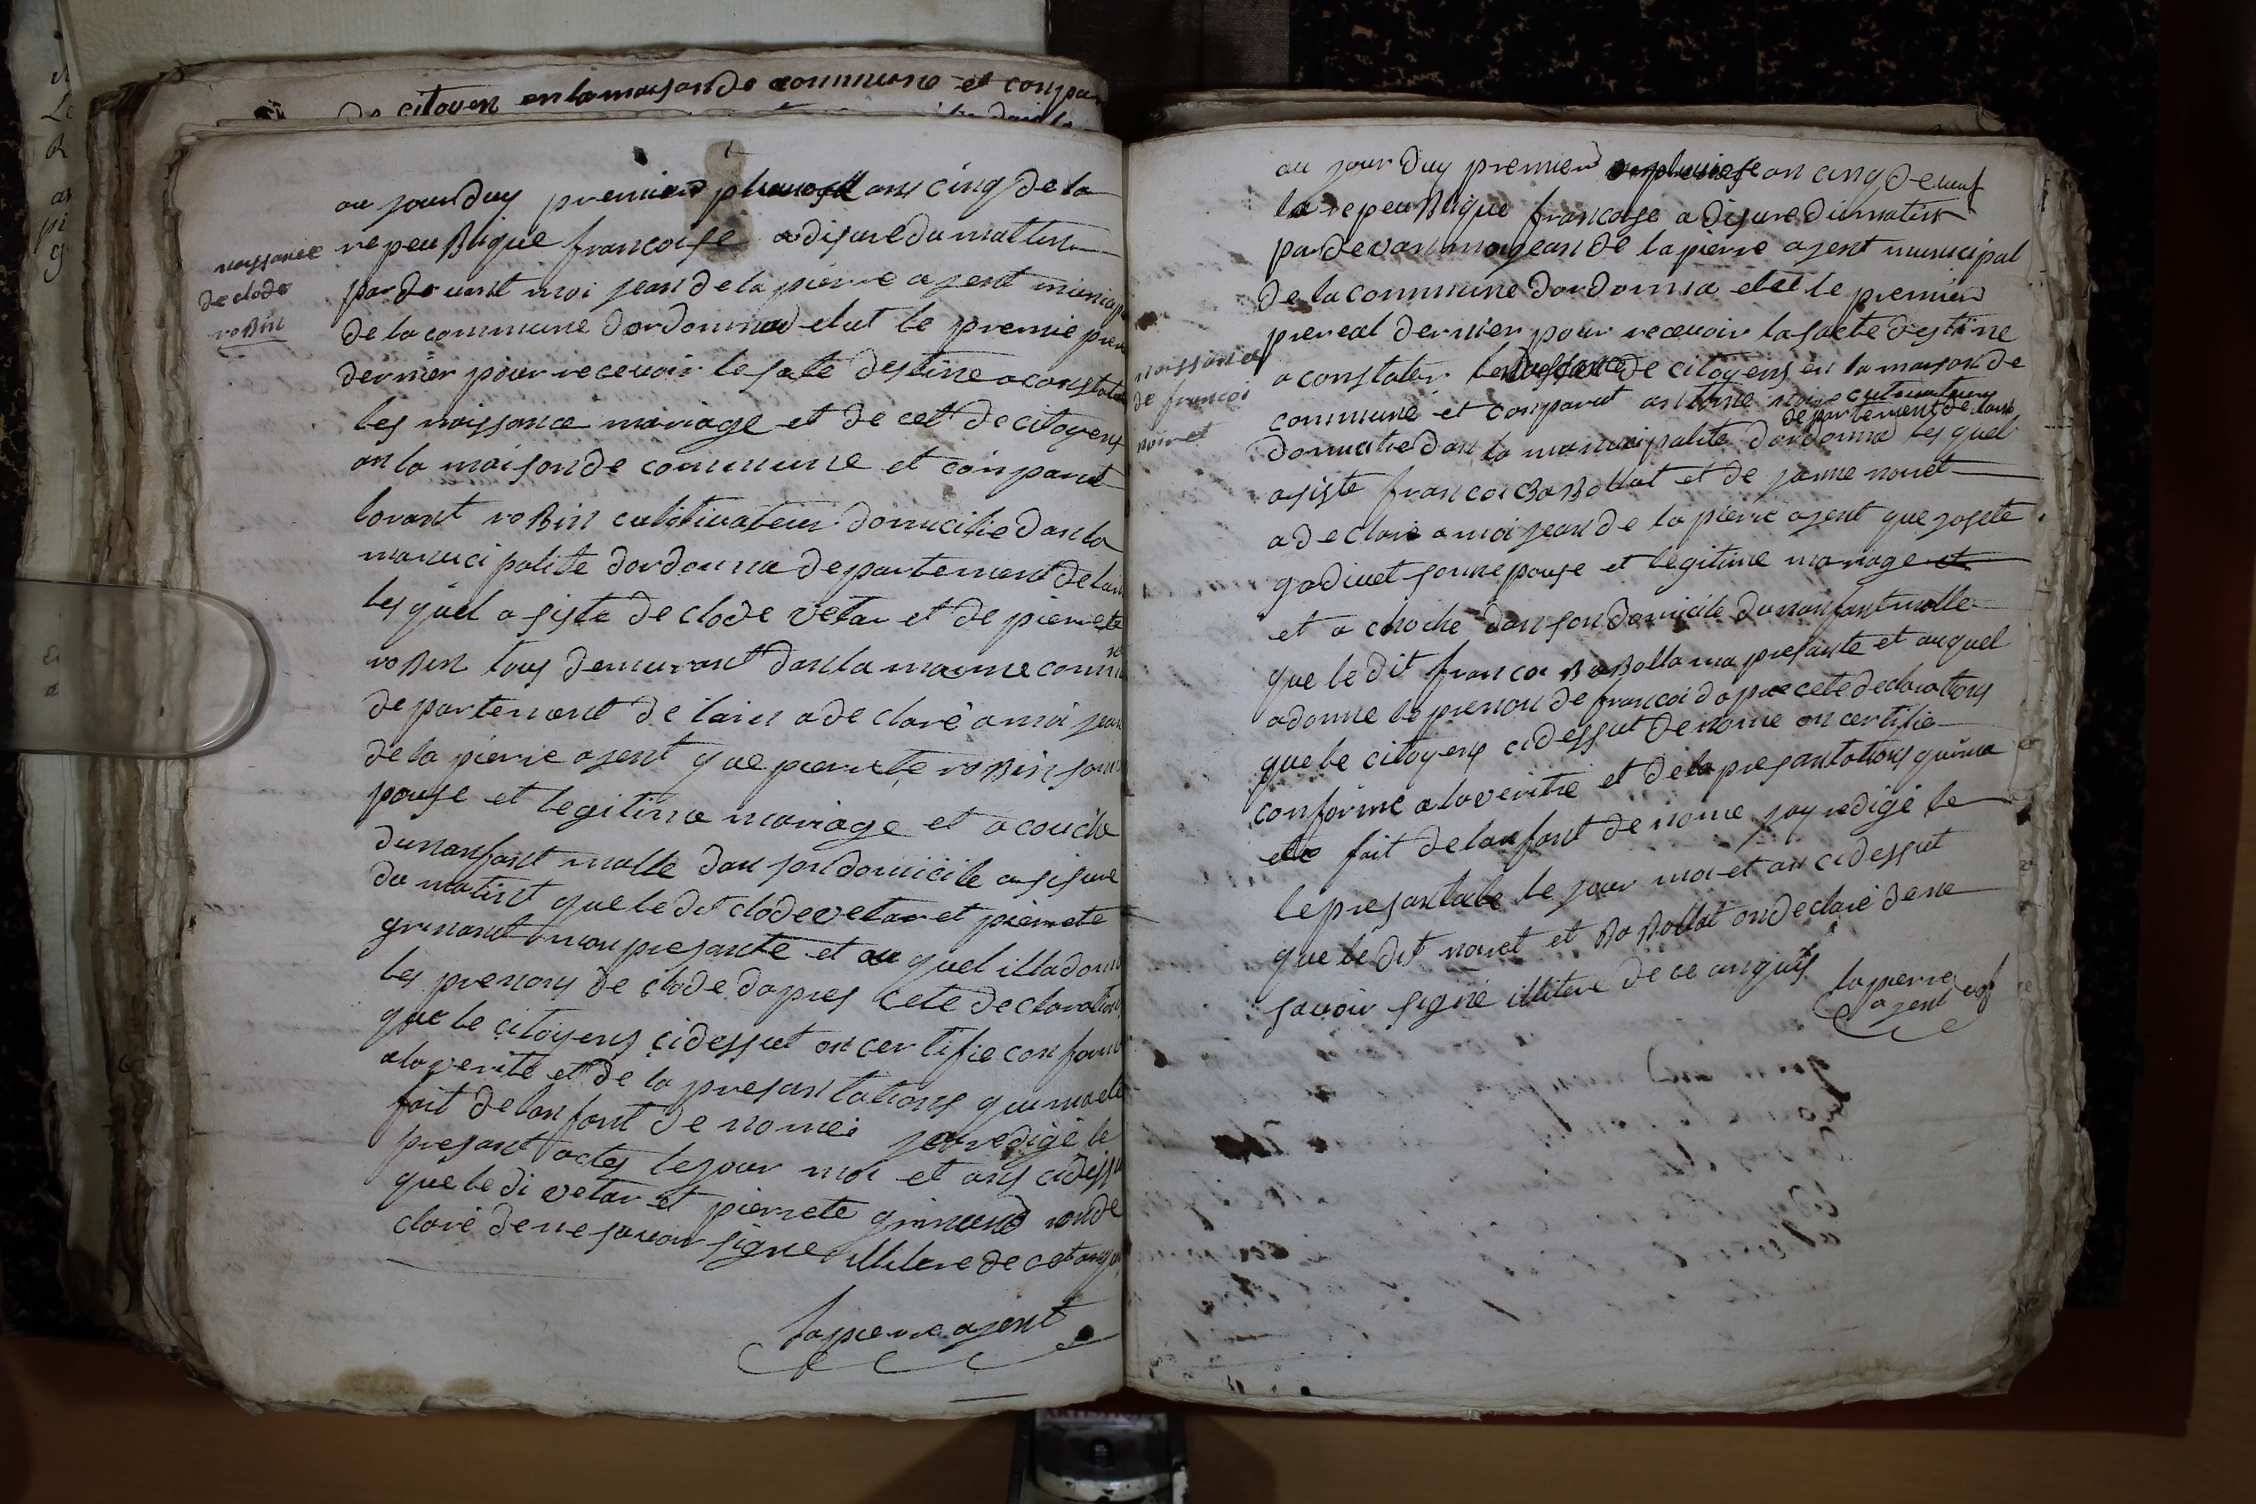 de citoyen en la maison de commune et conpar
naissance
de clode
roBin
au jourduy premierd pluviose ans cinq de la
repeuBlique francoise a disure du mattin
par devant moi jean de la pierre agent municipa
de la commune dordonnad elut le premie prer
dernier pour recevoir le sate destine a constate
les naissance mariage et de cet de citoyens
an la maison de commune et conparut
lorant roBin cultivateur domicilie dan la
manuci palite dordonna departement de lain
les quel a siste de clode vetar et de pierrete
roBin tous demurant dan la maeme commu
ne
de partement de lain a de claré a moi jean
de la pierre agent que pierrete roBin son e
pouse et legitima mariage et a couche
dunanfant malle dan son domicile a sis ure
du matint que le dit clode vetar et pierrete
grinand mon presante et au quel illa donne
les prenons de clode dapres cete declarations
que le citoyens cidessut on certifie conforme
a la verite et de la presantations qui ma ete
fait de lanfant de nomée jai redigé le
presant actes le jour moi et ans cidessu
que le di vetar et pierrete grinand onde
claré de ne savoir signe illitere de cet anqu
lapierre agent
naissance
de francoi
noiret
au jour duy premierd pluviose an cinq de neuf
la repeuBlique francoise a dis ure du matin
par devan moi jean de la pierre agent municipal
de la commune dordonna elut le premierd
prereal dernier pour recevoir la sacte destine
a constater la naissance de citoyens en la maison de
commune et conparut antoine noire cultivateur
de partement de lain
domicilie dan la manucipalite dordonna les quel
a siste francoi BaBollat et de janne noiret
a de claré a moi jean de la pierre agent que josete
godivet son epouse et legitime mariage et
et a couche dan son domicile dunanfant malle
que le dit francoi BaBolla ma presante et auquel
a donne le prenon de francoi dapre cete declarations
que le citoyens cidessut de nome on certifie
conforme a la verite et de la presantations qui ma
ete fait de lanfant de nome jay redigé le
le presant acte le jour moi et an cidessut
que le dit noiret et BaBollat on declaré de ne
savoir signe illitere de ce anquis
lapierre
agent